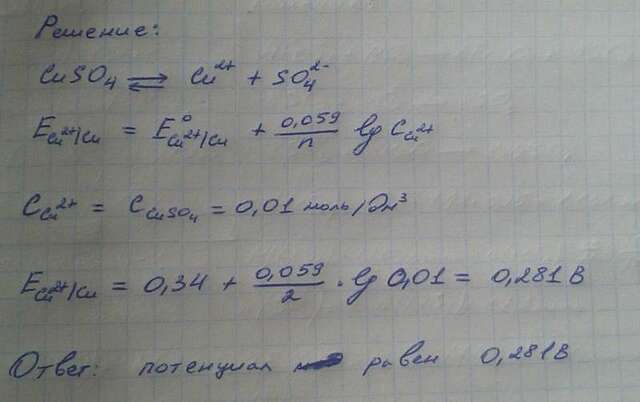 Решение:
CuSO₄ ⇌ Cu²⁺ + SO₄²⁻
E Cu²⁺/Cu = E⁰ Cu²⁺/Cu + 0,059/n lg C Cu²⁺
C Cu²⁺ = C CuSO₄ = 0,01 моль/дм³
E Cu²⁺/Cu = 0,34 + 0,059/2 · lg 0,01 = 0,281 В
Ответ: потенциал равен 0,281В